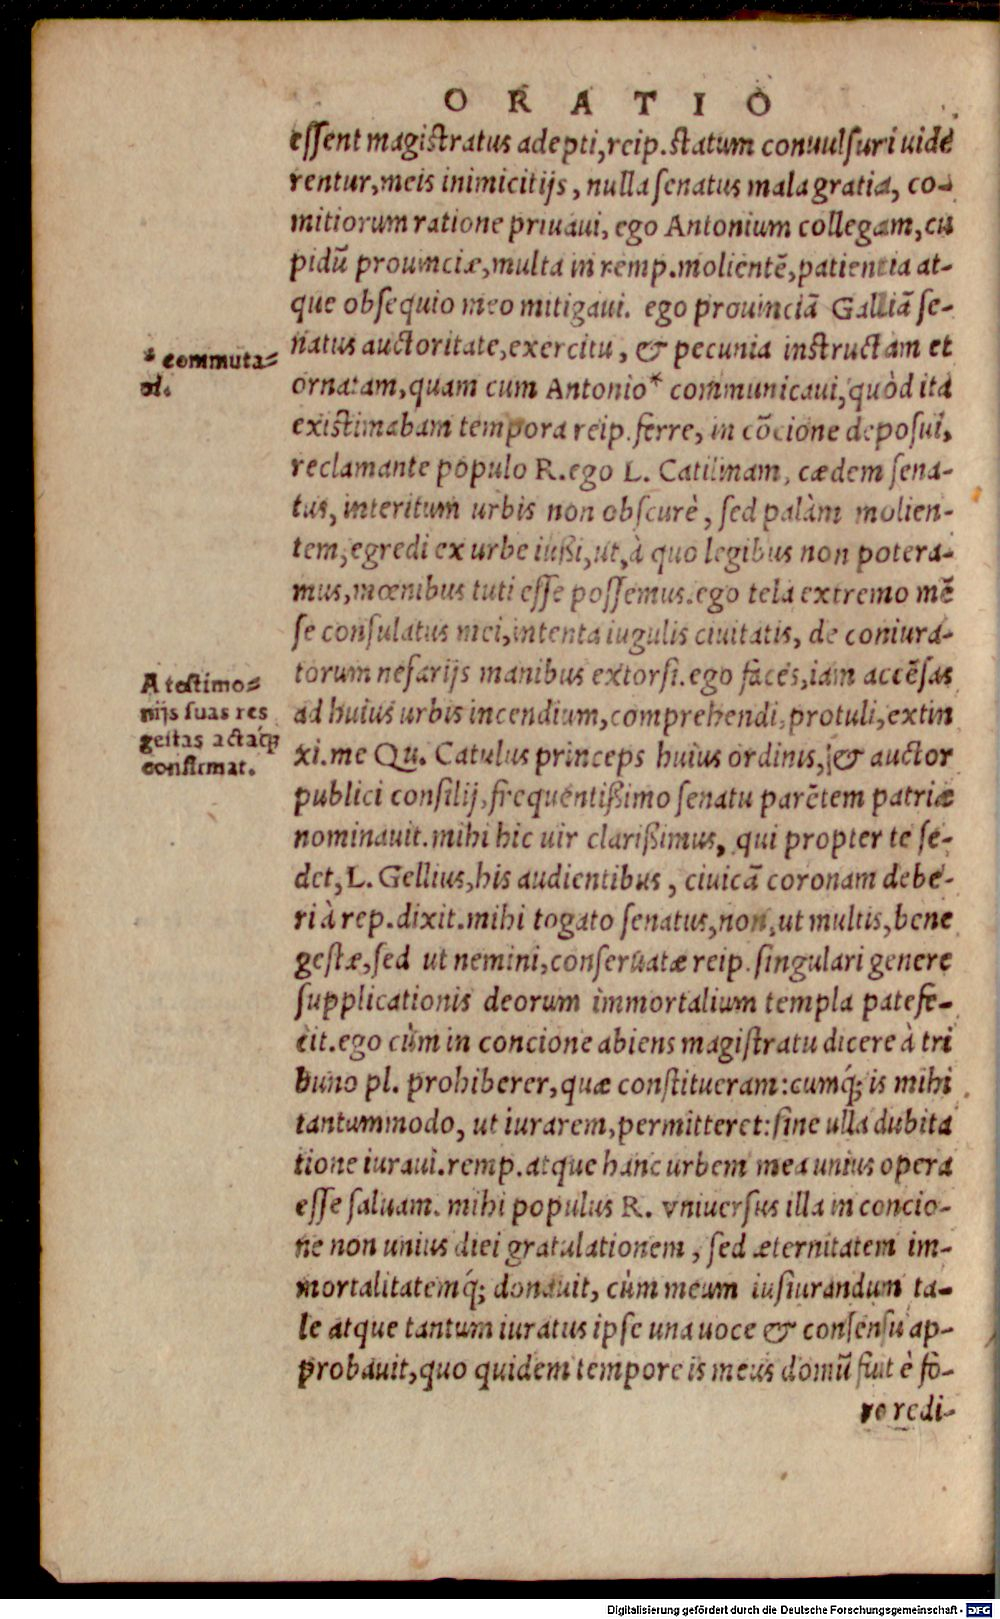 ORATIO
essent magistratus adepti, reip. statum conuulsuri uide
rentur, meis inimicitijs, nulla senatus mala gratia, co-
mitiorum ratione priuaui, ego Antonium collegam, cu
pidū prouinciæ, multa in remp. molientē, patientia at-
que obsequio meo mitigaui. ego prouinciā Galliā se-
natus auctoritate, exercitu, & pecunia instructam et
ornatam, quam cum Antonio* communicaui, quòd ita
existimabam tempora reip. ferre, in cōcione deposui,
reclamante populo R. ego L. Catilinam, cædem sena-
tus, interitum urbis non obscurè, sed palàm molien-
tem, egredi ex urbe iußi, ut, à quo legibus non potera-
mus, mœnibus tuti esse possemus. ego tela extremo mē
se consulatus mei, intenta iugulis ciuitatis, de coniura-
torum nefarijs manibus extorsi. ego faces, iam accēsas
ad huius urbis incendium, comprehendi, protuli, extin
xi. me Qu. Catulus princeps huius ordinis, & auctor
publici consilij, frequentißimo senatu parētem patriæ
nominauit. mihi hic uir clarißimus, qui propter te se-
det, L. Gellius, his audientibus, ciuicā coronam debe-
ri à rep. dixit. mihi togato senatus, non, ut multis, bene
gestæ, sed ut nemini, conseruatæ reip. singulari genere
supplicationis deorum immortalium templa patefe-
cit. ego cùm in concione abiens magistratu dicere à tri
buno pl. prohiberer, quæ constitueram: cumq́; is mihi
tantummodo, ut iurarem, permitteret: sine ulla dubita
tione iuraui. remp. atque hanc urbem mea unius opera
esse saluam. mihi populus R. vniuersus illa in concio-
ne non unius diei gratulationem, sed æternitatem im-
mortalitatemq́; donauit, cùm meum iusiurandum ta-
le atque tantum iuratus ipse una uoce & consensu ap-
probauit, quo quidem tempore is meus domū fuit è fo-
ro redi-
* commuta-
ui.
A testimo-
nijs suas res
gestas actasq́;
confirmat.
Digitalisierung gefördert durch die Deutsche Forschungsgemeinschaft - DFG